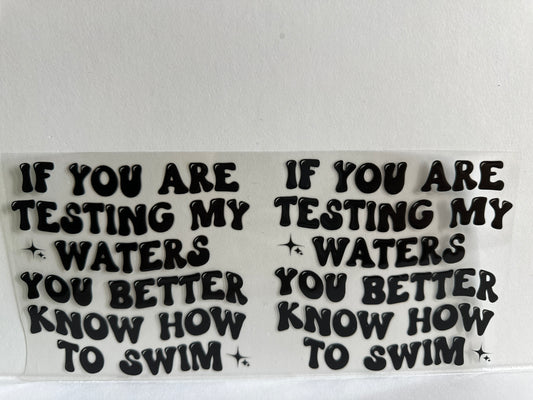 IF YOU ARE
TESTING MY
WATERS
YOU BETTER
KNOW HOW
TO SWIM
IF YOU ARE
TESTING MY
WATERS
YOU BETTER
KNOW HOW
TO SWIM